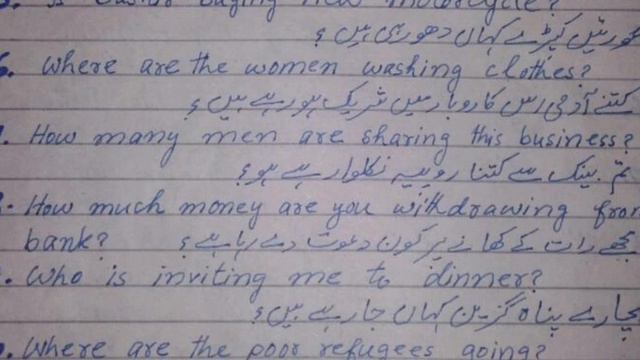 buying new motorcycle?
عورتیں کپڑے کہاں دھو رہی ہیں؟
6. Where are the women washing clothes?
کتنے آدمی اس کاروبار میں شریک ہو رہے ہیں؟
How many men are sharing this business?
تم بینک سے کتنا روپیہ نکلوا رہے ہو؟
How much money are you withdrawing from
bank? مجھے رات کے کھانے پر کون دعوت دے رہا ہے؟
Who is inviting me to dinner?
بچارے پناہ گزین کہاں جا رہے ہیں؟
Where are the poor refugees going?